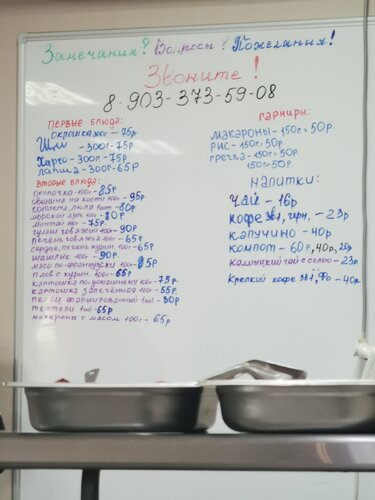 Замечания? Вопросы? Пожелания!
Звоните!
8-903-373-59-08
Первые блюда:
окрошка 300г - 75р
Шли - 300г - 75р
Харчо - 300г - 75р
лапша - 300г - 65р
Вторые блюда:
окорочка - 100г - 85р
овощи на кости 100г - 95р
котлета, люля 1шт - 80р
морской 100г - 80р
минтай 100г - 75р
гуляш говяжий 100г - 90р
печень говяжья 100г - 65р
сердце, печень курин. 100г - 65р
шашлик 100г - 90р.
мясо по-французски 100г - 85р
плов с курит 100г - 65р
картошка по-домашнему 100г - 75р.
картошка запечённая 100г - 55р.
перец фаршированный 1шт - 80р
тефтели 1шт - 65р
макароны с мясом 100г - 65р
гарниры:
макароны - 150г = 50р.
рис - 150г = 50р.
гречка - 150г = 50р
150г - 50р.
напитки:
чай - 16р
кофе 3в1, чёрн. - 23р
капучино - 40р
компот - 60р, 40р, 20р
калмыцкий чай с солью - 23р
крепкий кофе 3в1, - 40р